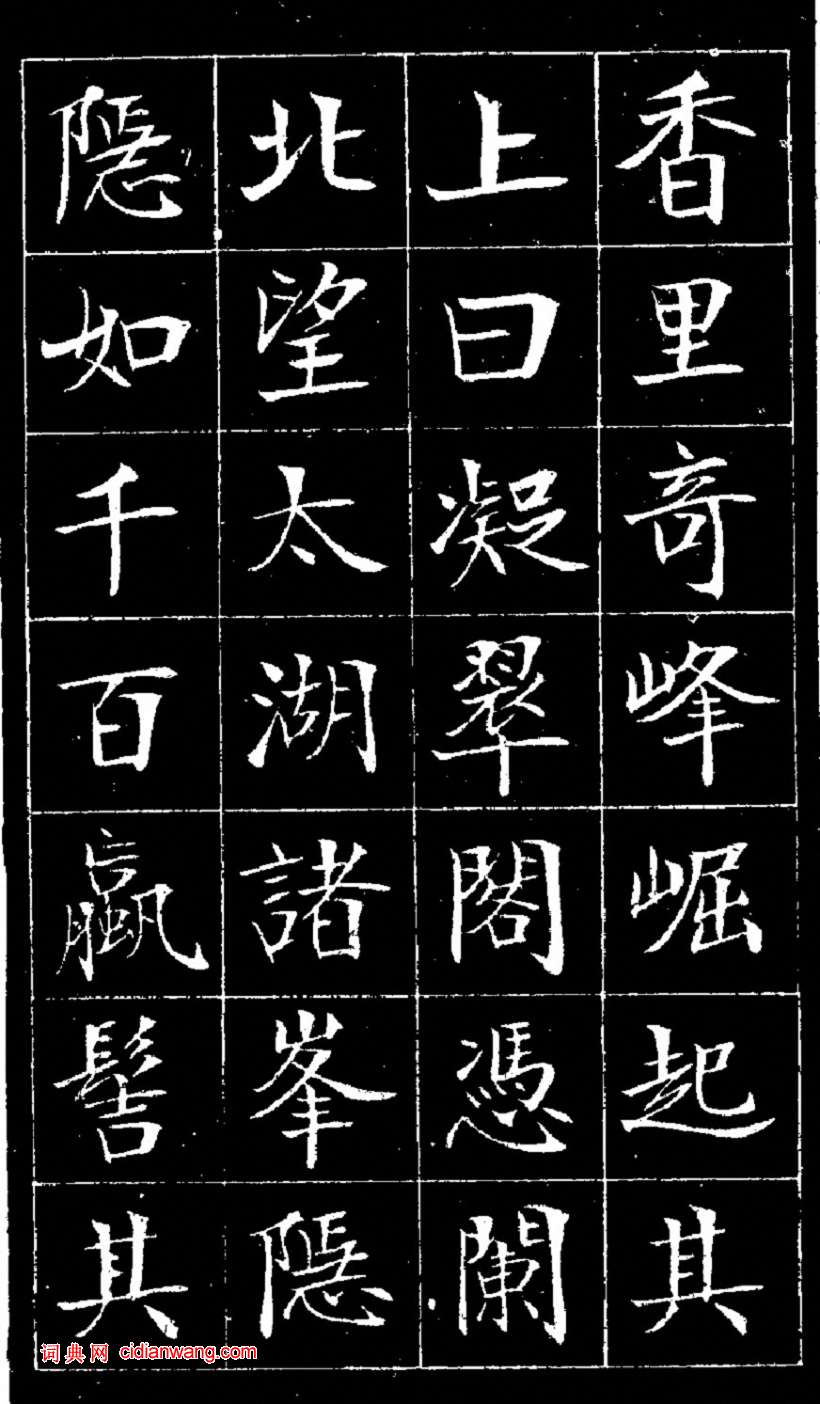 香里奇峰崛起其
上曰凝翠閣憑闌
北望太湖諸峯隱
隱如千百蠃髻其
词典网 cidianwang.com